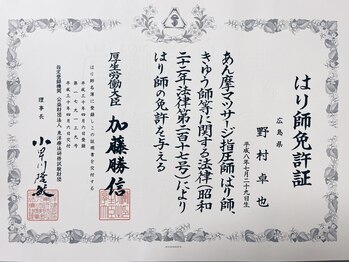 はり師免許証
広島県
野村卓也
平成八年七月二十九日生
あん摩マツサージ指圧師、はり師、
きゆう師等に関する法律（昭和
二十二年法律第二百十七号）により
はり師の免許を与える
はり師名簿に登録しこの証明書を交付する
厚生労働大臣
加藤勝信
指定登録機関 公益財団法人 東洋療法研修試験財団
理事長